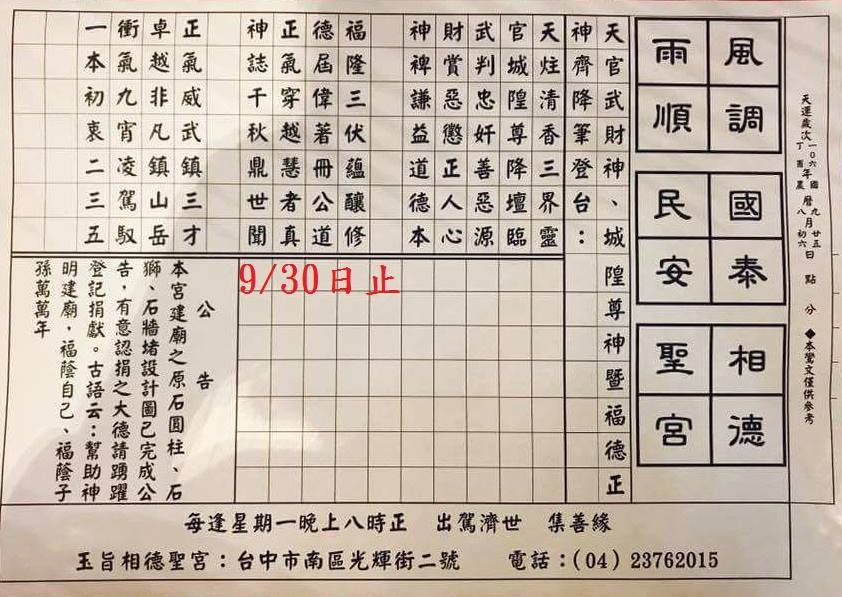 天運歲次一〇六丁酉年國農曆九八月廿五初六日 點 分 ◆本鸞文僅供參考
風調雨順
國泰民安
相德聖宮
天官武財神、城隍尊神暨福德正
神齊降筆登台：
天炷清香三界靈
官城隍尊降壇臨
武判忠奸善惡源
財賞惡懲正人心
神裨謙益道德本
福隆三伏蘊釀修
德屆偉著冊公道
正氣穿越慧者真
神誌千秋鼎世聞
正氣威武鎮三才
卓越非凡鎮山岳
衝氣九宵凌駕馭
一本初衷二三五
9/30日止
公告
本宮建廟之原石圓柱、石
獅、石牆堵設計圖已完成公
告，有意認捐之大德請踴躍
登記捐獻。古語云：幫助神
明建廟，福蔭自己、福蔭子
孫萬萬年
每逢星期一晚上八時正 出駕濟世 集善緣
玉旨相德聖宮：台中市南區光輝街二號 電話：(04) 23762015